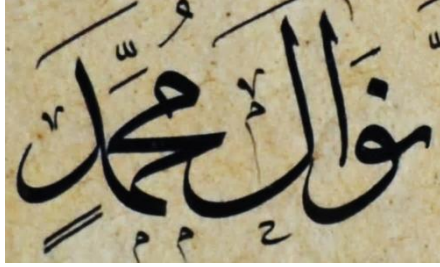 نَوَال مُحَمَّدٍ